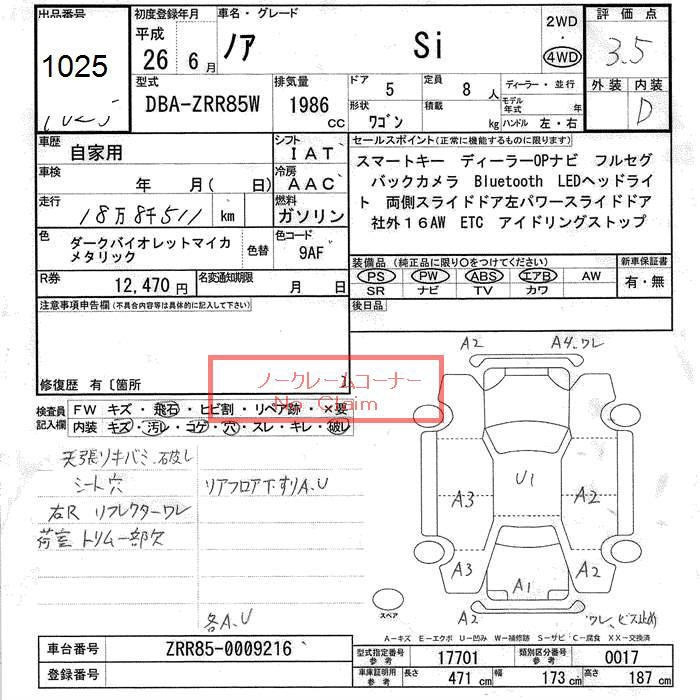 出品番号
1025
初度登録年月
平成
26 6月
車名・グレード
ノア Si
2WD
・
4WD
評価点
3.5
外装 内装
D
型式
DBA-ZRR85W
排気量
1986 cc
ドア 5
定員 8 人
形状 ワゴン
積載 kg
ディーラー・並行
モデル年式 年
ハンドル 左・右
車歴 自家用
シフト IAT
車検 年 月 (日)
冷房 AAC
走行 18万8千511 km
燃料 ガソリン
色 ダークバイオレットマイカメタリック
色替
色コード 9AF
R券 12,470円
名変通知期限 月 日
セールスポイント(正常に機能するものに限ります)
スマートキー ディーラーOPナビ フルセグ
バックカメラ Bluetooth LEDヘッドライ
ト 両側スライドドア左パワースライドドア
社外16AW ETC アイドリングストップ
装備品 (純正品に限り○をつけてください)
PS PW ABS エアB AW
SR ナビ TV カワ
新車保証書
有・無
後日品
注意事項申告欄(不具合内容等は具体的に記入して下さい)
修復歴 有〔箇所
ノークレームコーナー
No Claim
検査員記入欄
FW キズ・飛石・ヒビ割・リペア跡・×要
内装 キズ・汚レ・コゲ・穴・スレ・キレ・破レ
天張リキバミ、破レ
シート穴
右R リフレクターワレ
荷室トリム一部欠
リアフロア下すりA.U
各A.U
A2 A4、ワレ
U1
A3 A2
A3 A2
A1
A2 ワレ、ビス止め
スペア
A-キズ E-エクボ U-凹み W-補修跡 S-サビ C-腐食 XX-交換済
車台番号 ZRR85-0009216
登録番号
型式指定番号 参考 17701
類別区分番号 参考 0017
車庫証明用 参考 長さ 471 cm 幅 173 cm 高さ 187 cm